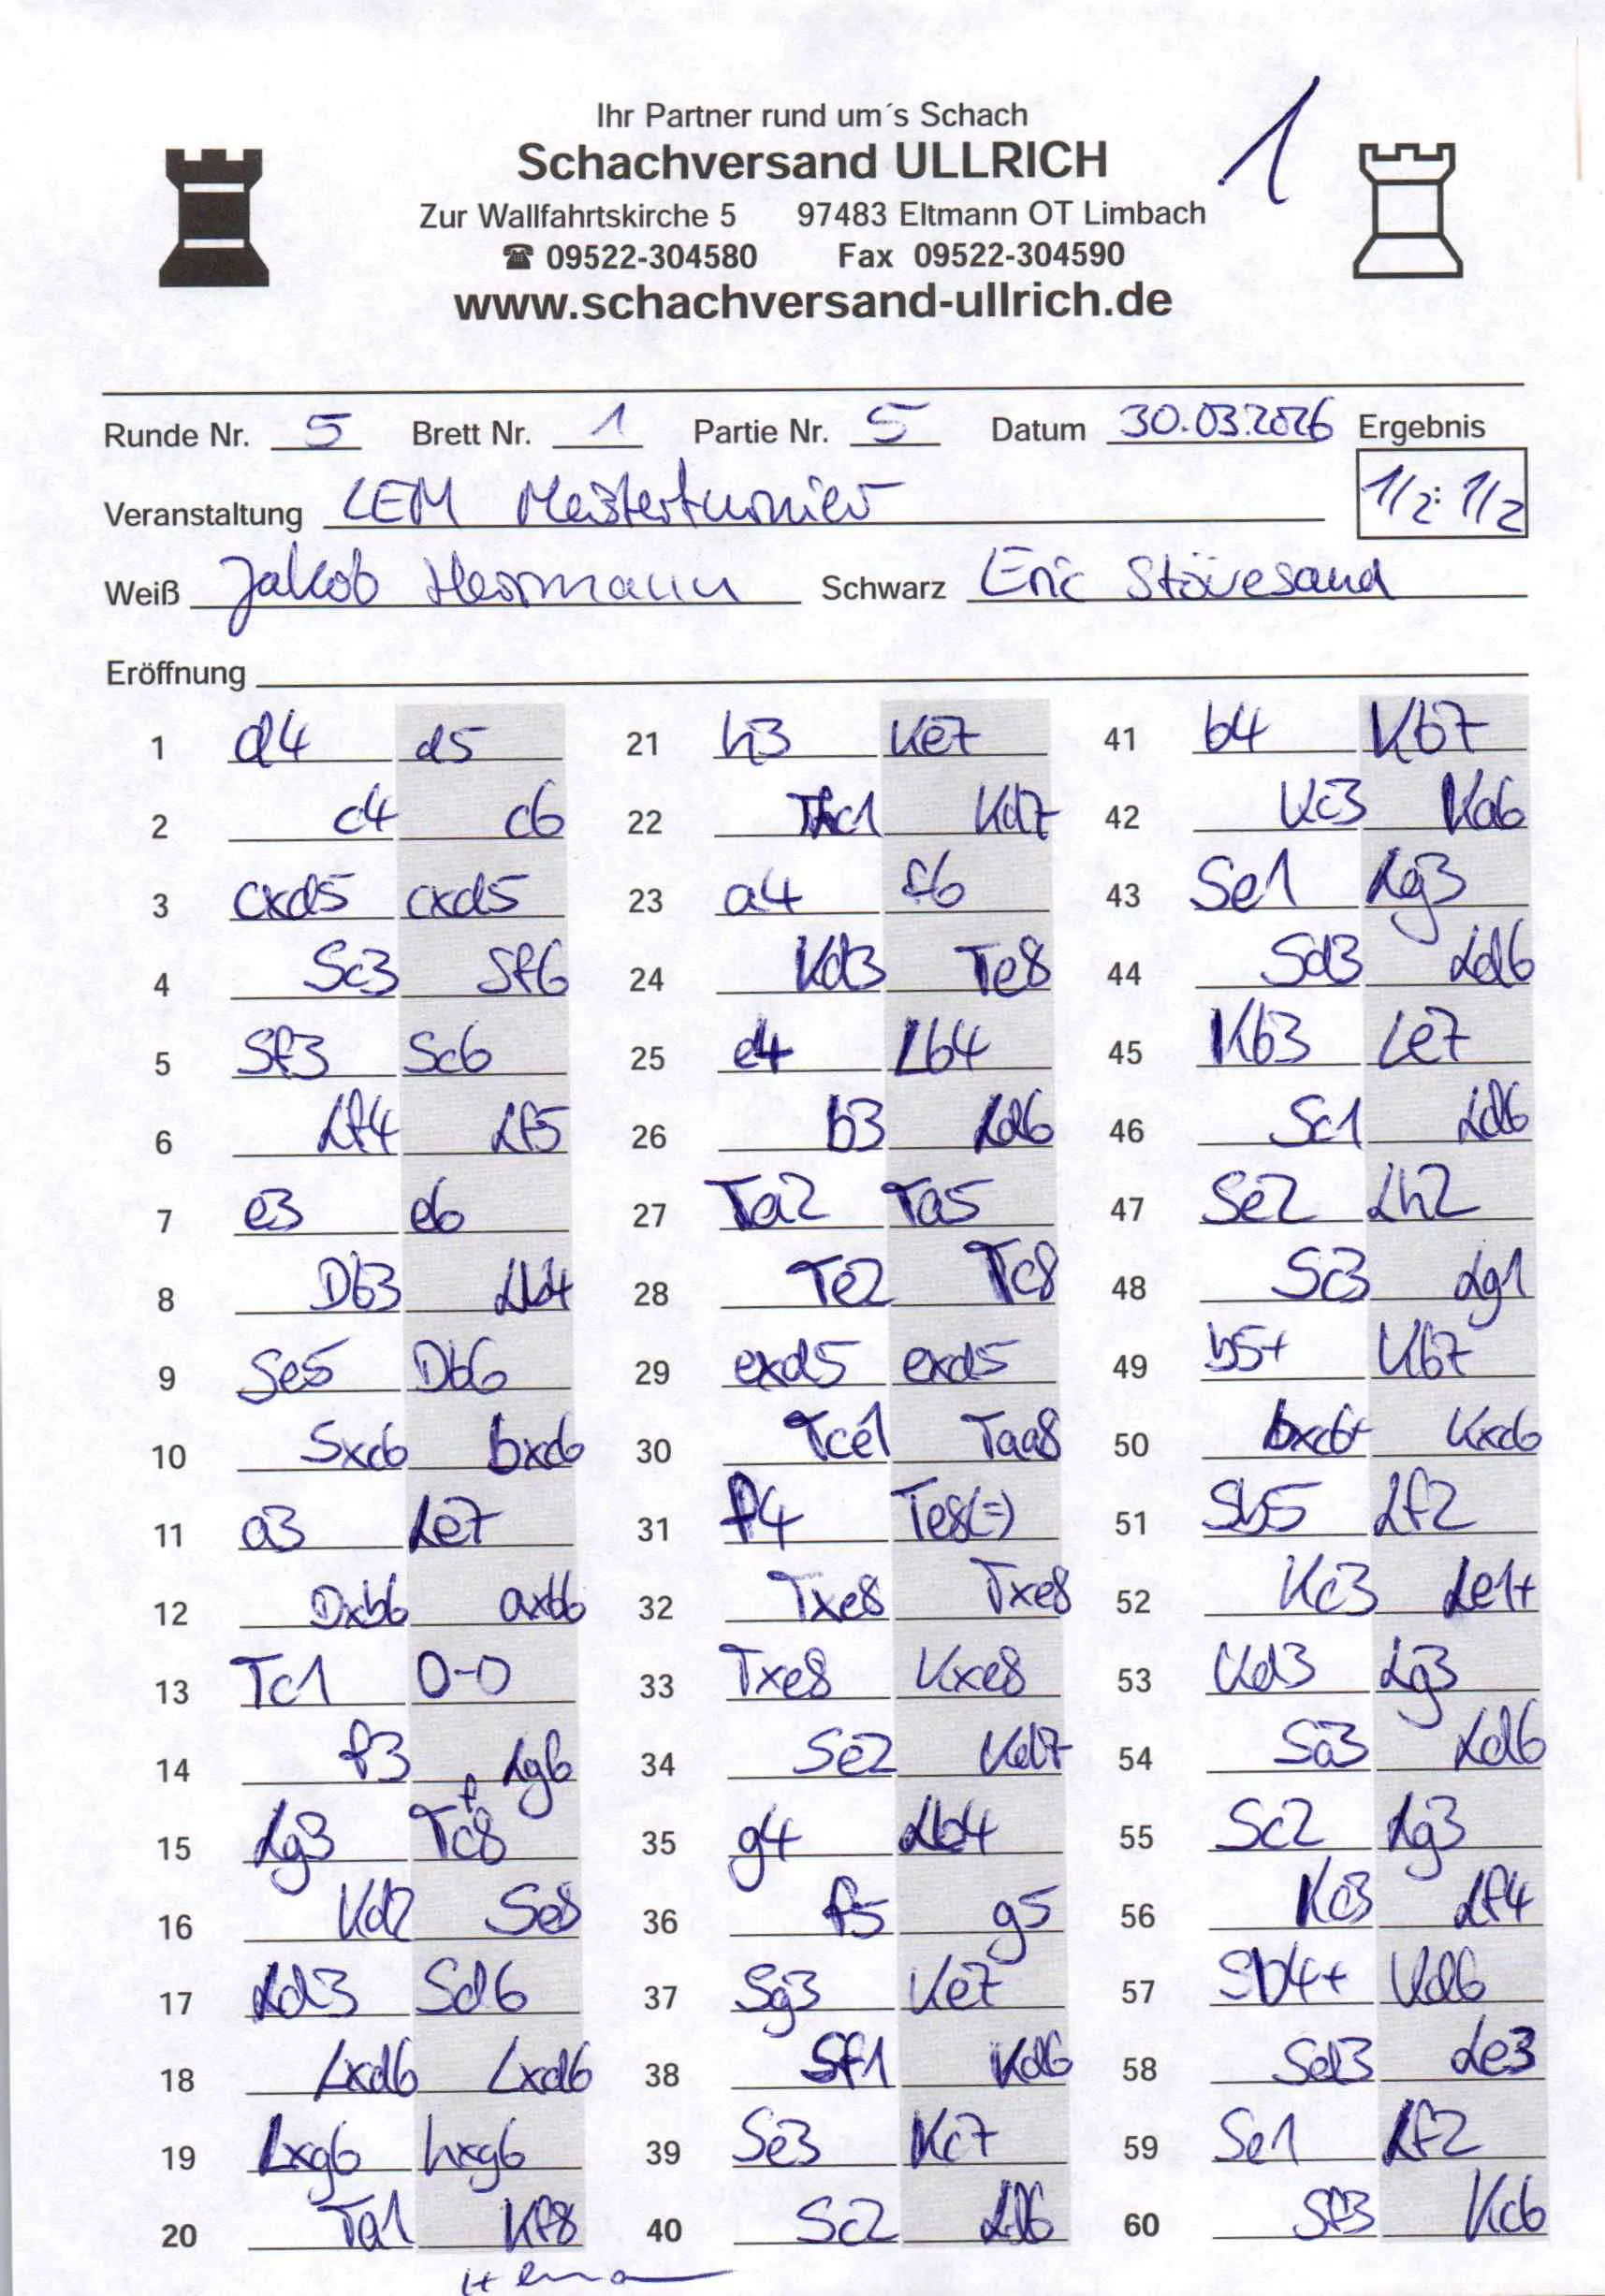 Ihr Partner rund um´s Schach
1
Schachversand ULLRICH
Zur Wallfahrtskirche 5 97483 Eltmann OT Limbach
☎ 09522-304580 Fax 09522-304590
www.schachversand-ullrich.de
Runde Nr. 5 Brett Nr. 1 Partie Nr. 5 Datum 30.03.2026 Ergebnis
Veranstaltung LEM Meisterturnier 1/2:1/2
Weiß Jakob Hermann Schwarz Eric Stövesand
Eröffnung
1 d4 d5 21 h3 Ke7 41 b4 Kb7
2 c4 c6 22 Thc1 Kd7 42 Kc3 Ka6
3 cxd5 cxd5 23 a4 f6 43 Se1 Lg3
4 Sc3 Sf6 24 Kd3 Te8 44 Sd3 Ld6
5 Sf3 Sc6 25 e4 Lb4 45 Kb3 Le7
6 Lf4 Lf5 26 b3 Ld6 46 Sc1 Ld6
7 e3 e6 27 Ta2 Ta5 47 Se2 Lh2
8 Db3 Lb4 28 Te2 Tc8 48 Sc3 Lg1
9 Se5 Db6 29 exd5 exd5 49 b5+ Kb7
10 Sxc6 bxc6 30 Tce1 Taa8 50 bxc6+ Kxc6
11 a3 Le7 31 f4 Te8(=) 51 Sb5 Lf2
12 Dxb6 axb6 32 Txe8 Txe8 52 Kc3 Le1+
13 Tc1 0-0 33 Txe8 Kxe8 53 Kd3 Lg3
14 f3 Lg6 34 Se2 Kd7 54 Sa3 Ld6
15 Lg3 Tfc8 35 g4 Lb4 55 Sc2 Lg3
16 Kd2 Se8 36 f5 g5 56 Kc3 Lf4
17 Ld3 Sd6 37 Sg3 Ke7 57 Sb4+ Kd6
18 Lxd6 Lxd6 38 Sf1 Kd6 58 Sd3 Le3
19 Lxg6 hxg6 39 Se3 Kc7 59 Se1 Lf2
20 Ta1 Kf8 40 Sc2 Ld6 60 Sf3 Kc6